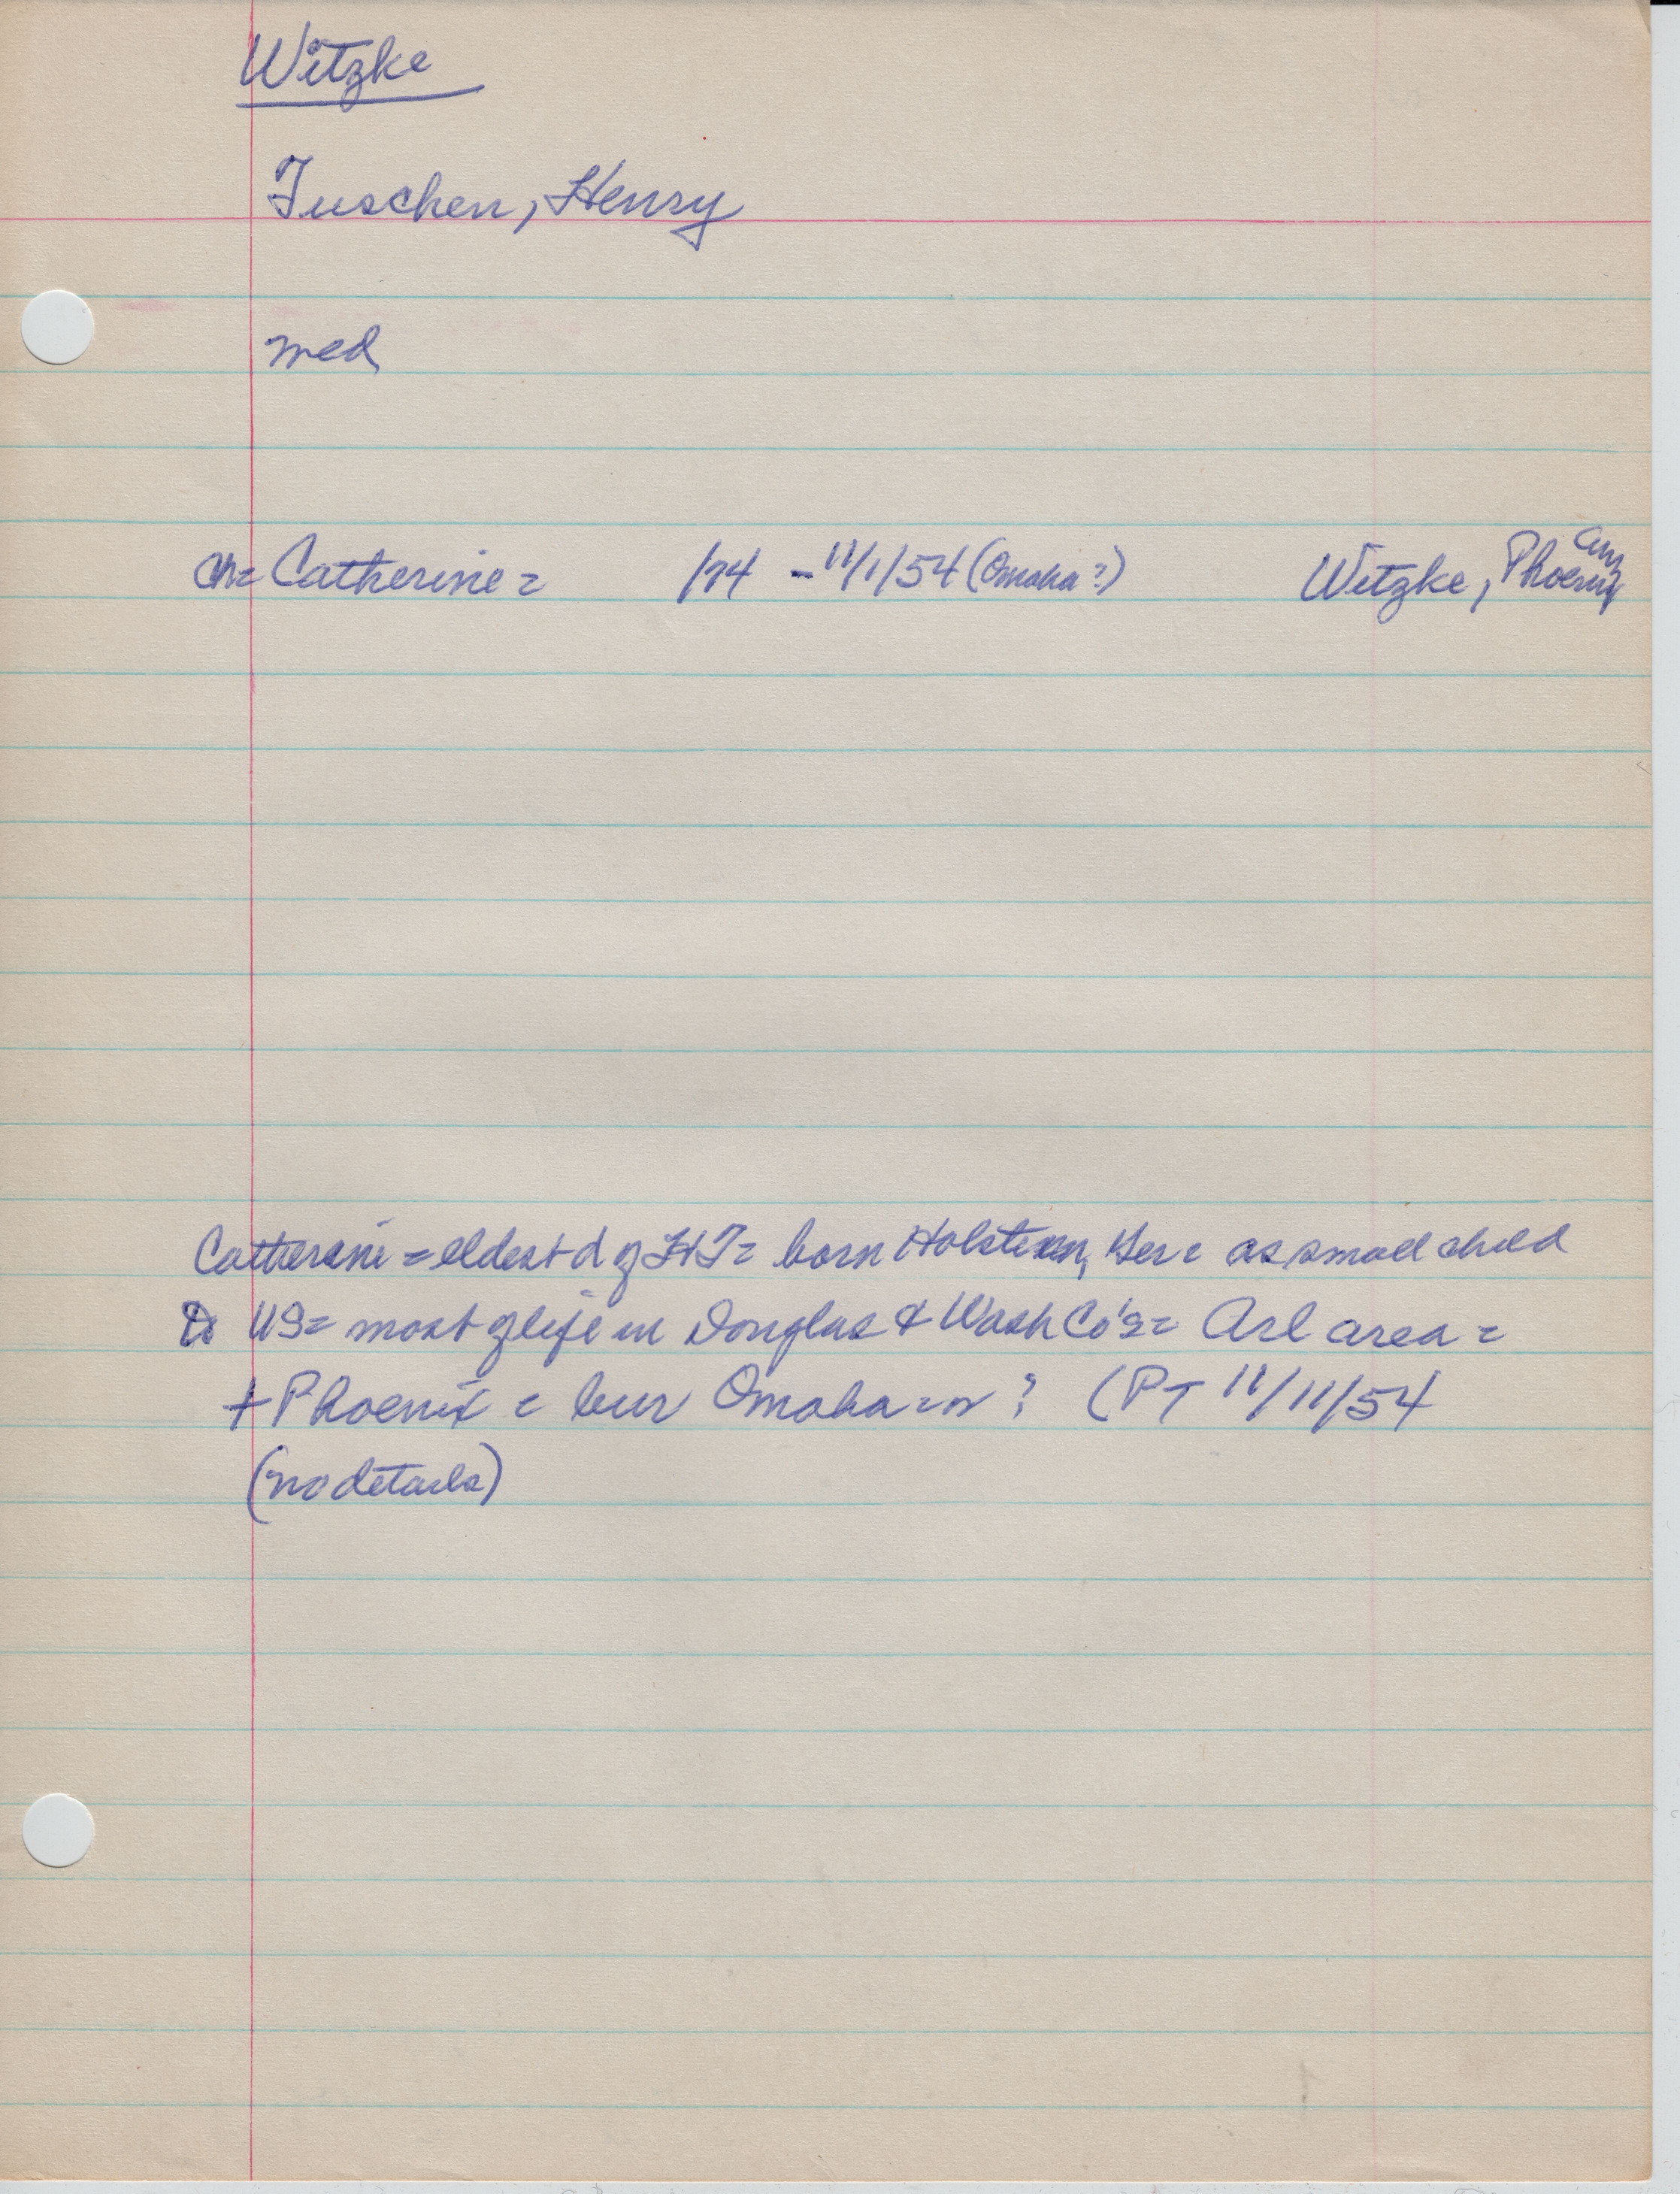 Witzke
Tuschen, Henry
med
ch= Catherine = /74 - 11/1/54 (Omaha?) Witzke, Phoenix
Catherine = eldest d of HT = born Holstein, Ger = as small child
to US = most of life in Douglas & Wash Co's = Arl area =
+ Phoenix = bur Omaha = or ? (PT 11/11/54
(no details)